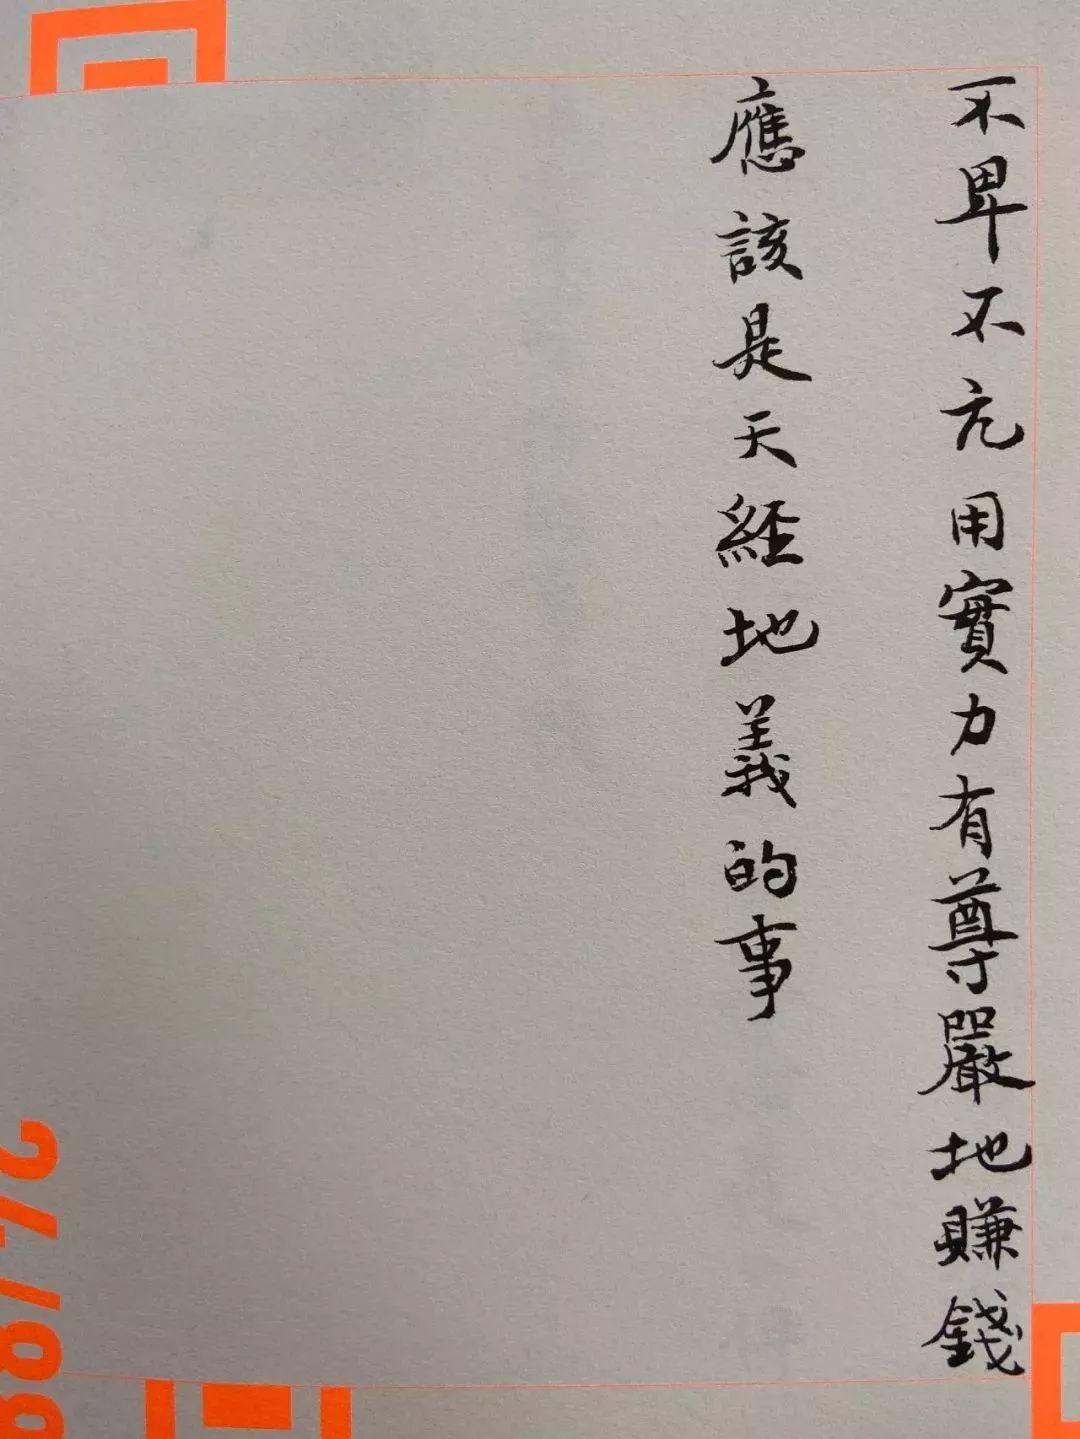 不卑不亢用實力有尊嚴地賺錢
應該是天經地義的事